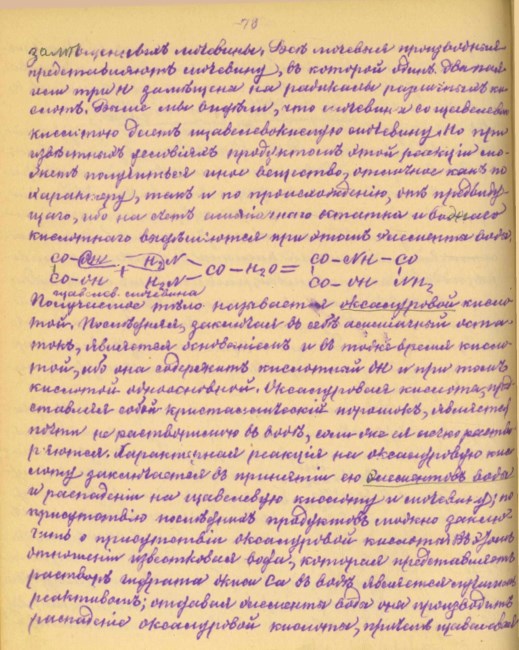 70
замѣщенныхъ мочевины. Всѣ мочевыя производныя
представляютъ мочевину, въ которой одинъ, два ная
или три Н замѣщена на радикалы различныхъ ки-
слотъ. Выше мы видѣли, что мочевина со щавелевою
кислотою даетъ щавелевокислую мочевину. Но при
извѣстныхъ условіяхъ продуктомъ этой реакціи мо-
жетъ получиться иное вещество, отличное какъ по
характеру, такъ и по происхожденію, отъ предъиду-
щаго, ибо на счетъ амміачнаго остатка и воднаго
кислотнаго выдѣляются при этомъ элементы воды.
CO – OH H2N CO – NH – CO
CO – OH + H2N CO – H2O = CO – OH NH2
щавелев. мочевина
Получаемое тѣло называется оксалуровой кисло-
той. Послѣдняя, заключая въ себѣ амміачный оста-
токъ, является основаніемъ и въ тоже время кисло-
той, ибо она содержитъ кислотный ОН и при томъ
кислотой одноосновной. Оксалуровая кислота, пред-
ставляя собой кристаллическій порошокъ, является
почти не растворимою въ водѣ, соли она ея легко раство-
ряются. Характерная реакція на оксалуровую кис-
лоту заключается въ принятіи ею элементовъ воды
и распаденіи на щавелевую кислоту и мочевину; по
присутствію послѣднихъ продуктовъ можно заклю-
чить о присутствіи оксалуровой кислоты. Въ этомъ
отношеніи известковая вода, которая представляетъ
растворъ гидрата окиси Ca въ водѣ, является лучшимъ
реактивомъ; отдавая элементы воды она производитъ
распаденіе оксалуровой кислоты, причемъ щавелевая